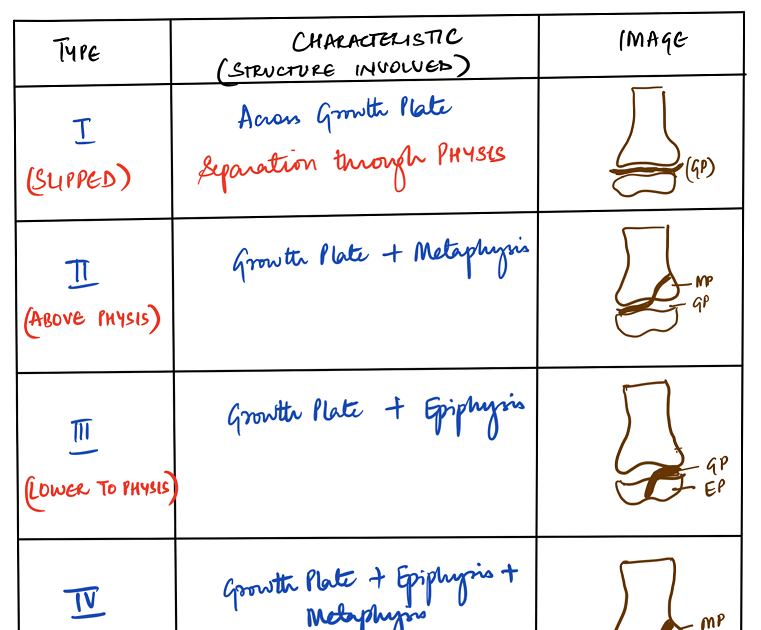 TYPE
CHARACTERISTIC
(STRUCTURE INVOLVED)
IMAGE
I
(SLIPPED)
Across Growth Plate
Separation through PHYSIS
(GP)
II
(ABOVE PHYSIS)
Growth Plate + Metaphysis
MP
GP
III
(LOWER TO PHYSIS)
Growth Plate + Epiphysis
GP
EP
IV
Growth Plate + Epiphysis +
Metaphysis
MP